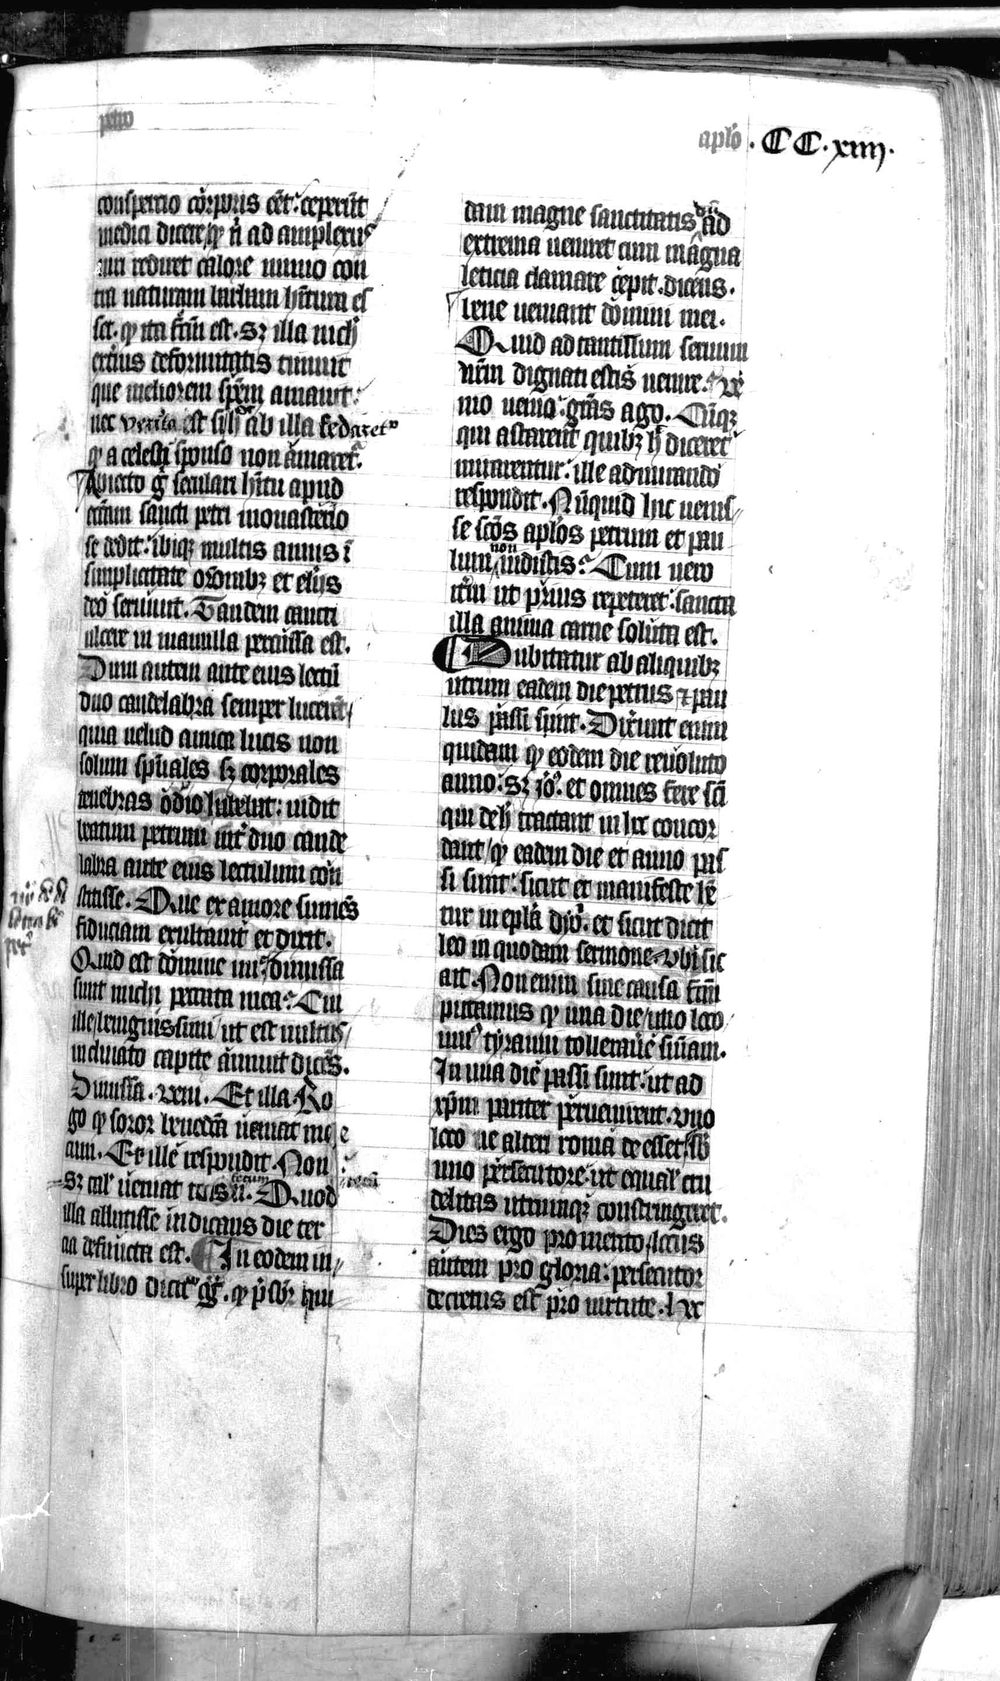 petro
aplo . CC . xiiij .
conspersio corporis eēt : ceperūt
medici dicere / qꝫ n̄ ad amplexus
uiri rediret calore nimio con
tra naturam barbam hitura es
set . qꝫ ita fc̄m est . sꝫ illa nich̄
exterius deformitatis timuit
que interiorem spēm amauit :
nec verita est si h̄ ab illa fedaretr
qꝫ a celesti sponso non amaret̄ .
Abiecto gͦ seculari hitu apud
ecc̄iam sancti petri monasterio
se dedit : ibiqꝫ multis annis ī
simplicitate or̄onibꝫ et elijs
deo seruiuit . Tandem cancri
ulcere in mamilla percussa est .
Dum autem ante eius lectū
duo candelabra semper lucerēt /
quia uelud amica lucis non
solum sp̄uales sꝫ corporales
tenebras odio habebat : uidit
beatum petrum int̄ duo cande
labra ante eius lectulum con
stitisse . Que ex amore sumēs
fiduciam exultauit et dixit .
Quid est domine mi : dimissa
sunt michi peccata mea : Cui
ille / benignissimi / ut est uultus /
inclinato capite annuit dicēs .
Dimissa . veni . Et illa . Ro
go qꝫ soror benedc̄a ueniat me
cum . Et ille respondit . Non :
Sꝫ tal̄ ueniat tecum . Quod
illa abbatisse indicans die ter
cia defuncta est . In eodem in /
super libro dicit gͬg̃ . qꝫ p̄sbr̄ qui
dam magne sanctitatis dū ad
extrema ueniret cum magna
leticia clamare cepit . dicens .
bene ueniant domini mei .
Quid ad tantillum seruum
urm̄ dignati estis uenire . Ve
nio uenio : grās ago . Cūqꝫ
qui astarent quibꝫ h̄ diceret
mirarentur : ille admirando
respondit . Nūquid huc uenis /
se scōs aplōs petrum et pau
lum non uidistis : Cum uero
itm̄ ut prius repeteret : sancta
illa anima carne soluta est .
Dubitatur ab aliquibꝫ
utrum eadem die petrus ⁊ pau
lus passi sunt . Dixerunt enim
quidam qꝫ eodem die reuoluto
anno : Sꝫ Jeroꝰ . et omnes fere scī
qui de h̄ tractant in hoc concor
dant / qꝫ eadem die et anno pas
si sunt : sicut et manifeste hē
tur in epl̄a dyoꝰ . et sicut dicit
leo in quodam sermone . ubi sic
ait . Non enim sine causa fc̄m
putamus qꝫ una die / uno loco /
uniꝰ tyranni tollerauēre sniam .
In una die passi sunt : ut ad
xp̄m pariter peruenirent . uno
loco ne alteri roma deesset / sb̄
uno persecutore : ut equal̄ cru
delitas utrumqꝫ constringeret .
Dies ergo pro merito / locus
autem pro gloria : persecutor
decretus est pro uirtute . hec